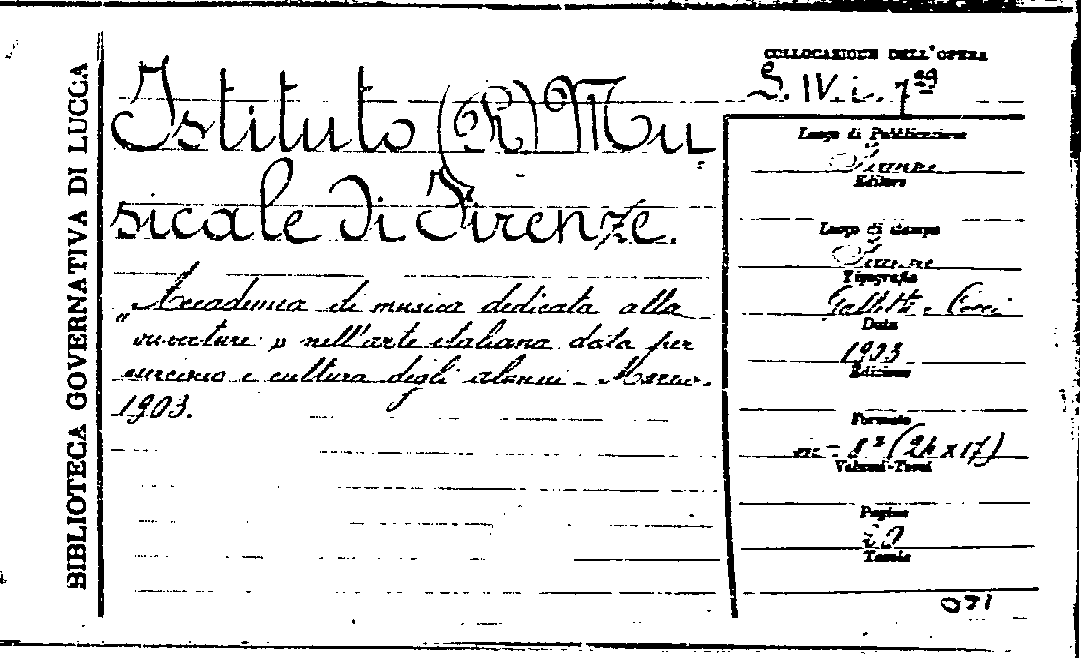 BIBLIOTECA GOVERNATIVA DI LUCCA
Istituto (R) Mu
sicale di Firenze.
Accademia di musica dedicata alla
"ouverture" nell'arte italiana data per
esercizio e cultura degli alunni - Marzo.
1903.
COLLOCAZIONE DELL'OPERA
IV. i. 7
Luogo di Pubblicazione
Firenze
Editore
Luogo di stampa
Firenze
Tipografia
Galletti e Cocci
Data
1903
Edizione
Formato
in - 8° (24 x 17)
Volumi-Tomi
Pagine
20
Tavole
071